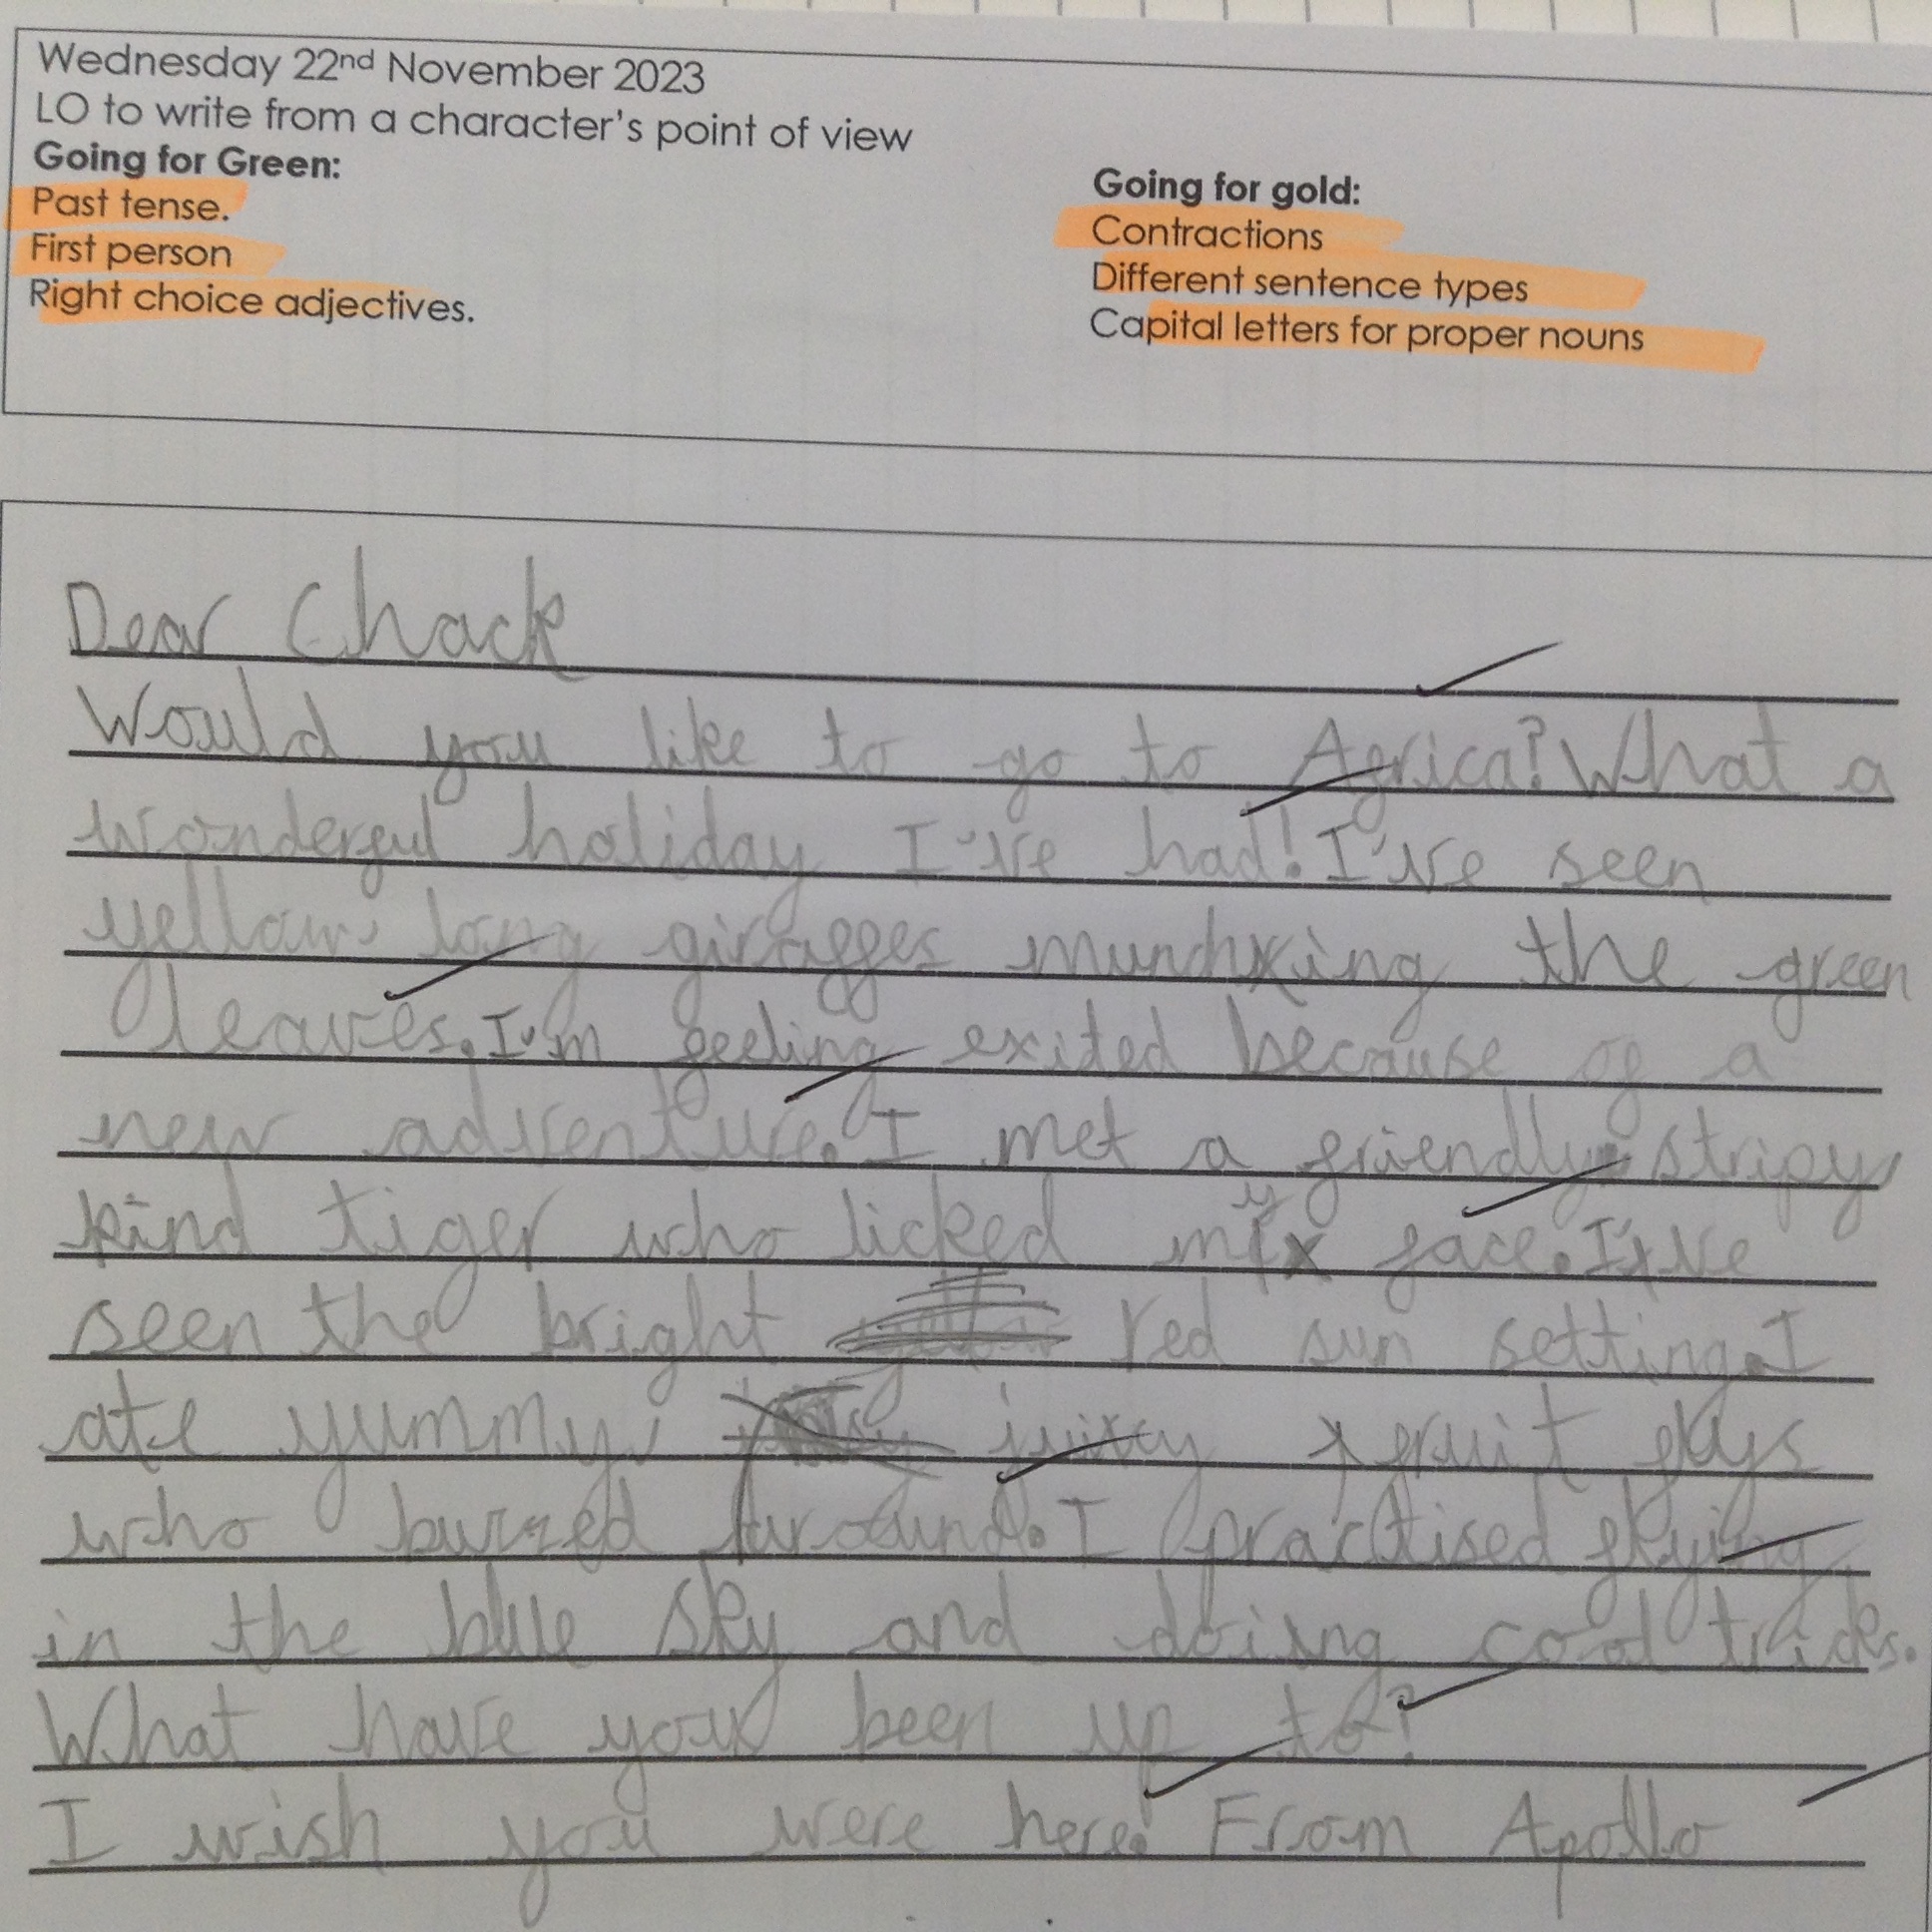 Wednesday 22nd November 2023
LO to write from a character's point of view
Going for Green:
Past tense.
First person
Right choice adjectives.
Going for gold:
Contractions
Different sentence types
Capital letters for proper nouns
Dear Chack
Would you like to go to Africa? What a
wonderful holiday I've had! I've seen
yellow, long giraffes munching the green
leaves. I'm feeling exited because of a
new adventure. I met a friendly, stripy
kind tiger who licked my face. I've
seen the bright red sun setting. I
ate yummy, juicy fruit flys
who buzzed around. I practised flying
in the blue sky and doing cool tricks.
What have you been up to?
I wish you were here! From Apollo